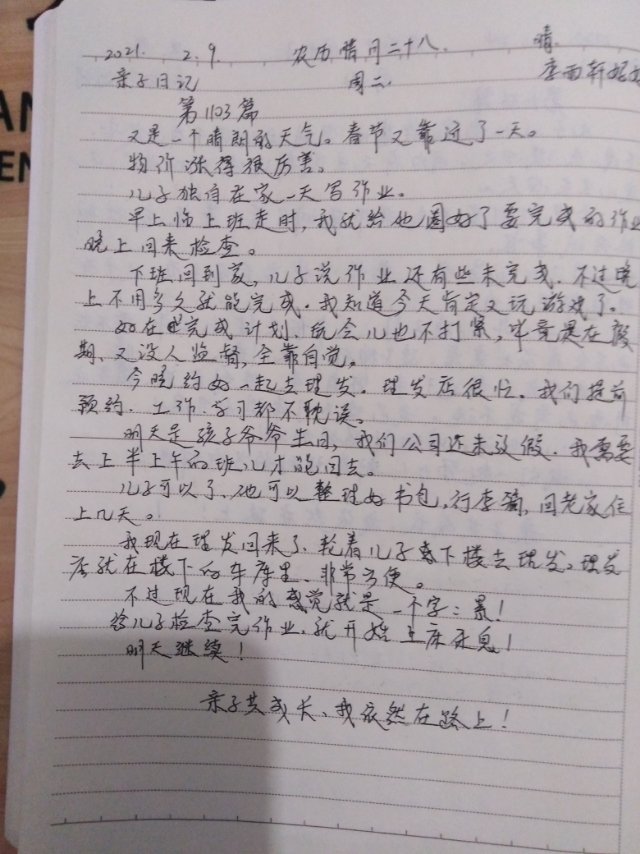 2021. 2. 9. 农历腊月二十八. 晴.
亲子日记 周二.
第1103篇
又是一个晴朗的天气。春节又靠近了一天。
物价涨得很厉害。
儿子独自在家一天写作业。
早上临上班走时,我就给他圈好了要完成的作业
晚上回来检查。
下班回到家,儿子说作业还有些未完成.不过晚
上不用多久就能完成.我知道今天肯定又玩游戏了。
如在完成计划.玩会儿也不打紧,毕竟是在假
期、又没人监督,全靠自觉。
今晚约好一起去理发.理发店很忙.我们提前
预约.工作.学习都不耽误。
明天是孩子爷爷生日,我们公司还未放假.我需要
去上半上午的班儿才能回去。
儿子可以了,他可以整理好书包,行李箱,回老家住
上几天。
我现在理发回来了、轮着儿子下楼去理发。理发
店就在楼下的车库里、非常方便。
不过现在我的感觉就是一个字:累!
给儿子检查完作业.就开始上床休息!
明天继续!
亲子共成长、我依然在路上!
AN
EN